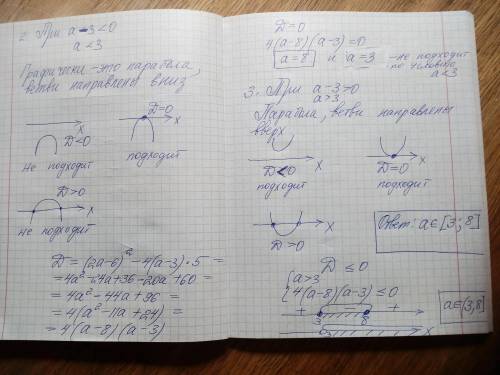 2. При a-3<0
a<3
Графически - это парабола,
ветви направлены вниз
x
D<0
не подходит
D=0
x
подходит
D>0
x
не подходит
D = (2a-6)² - 4(a-3)·5 =
= 4a² - 24a + 36 - 20a + 60 =
= 4a² - 44a + 96 =
= 4(a² - 11a + 24) =
= 4(a-8)(a-3)
D=0
4(a-8)(a-3)=0
a=8 и a=3 - не подходит
по условию
a<3
3. При a-3>0
a>3
Парабола, ветви направлены
вверх
x
D<0
подходит
x
D=0
подходит
x
D>0
Ответ: a∈[3;8]
D ≤ 0
{a>3
{4(a-8)(a-3) ≤ 0
+ 3 8 +
3 x
a∈(3,8]